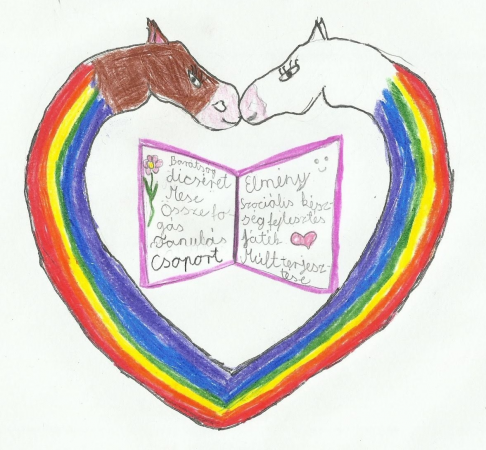 Barátság
dicséret
Mese
Összefo-
gás
Tanulás
Csoport
Elmény
Szociális kész-
ségfejlesztés
játék
Múlt terjesz-
tése